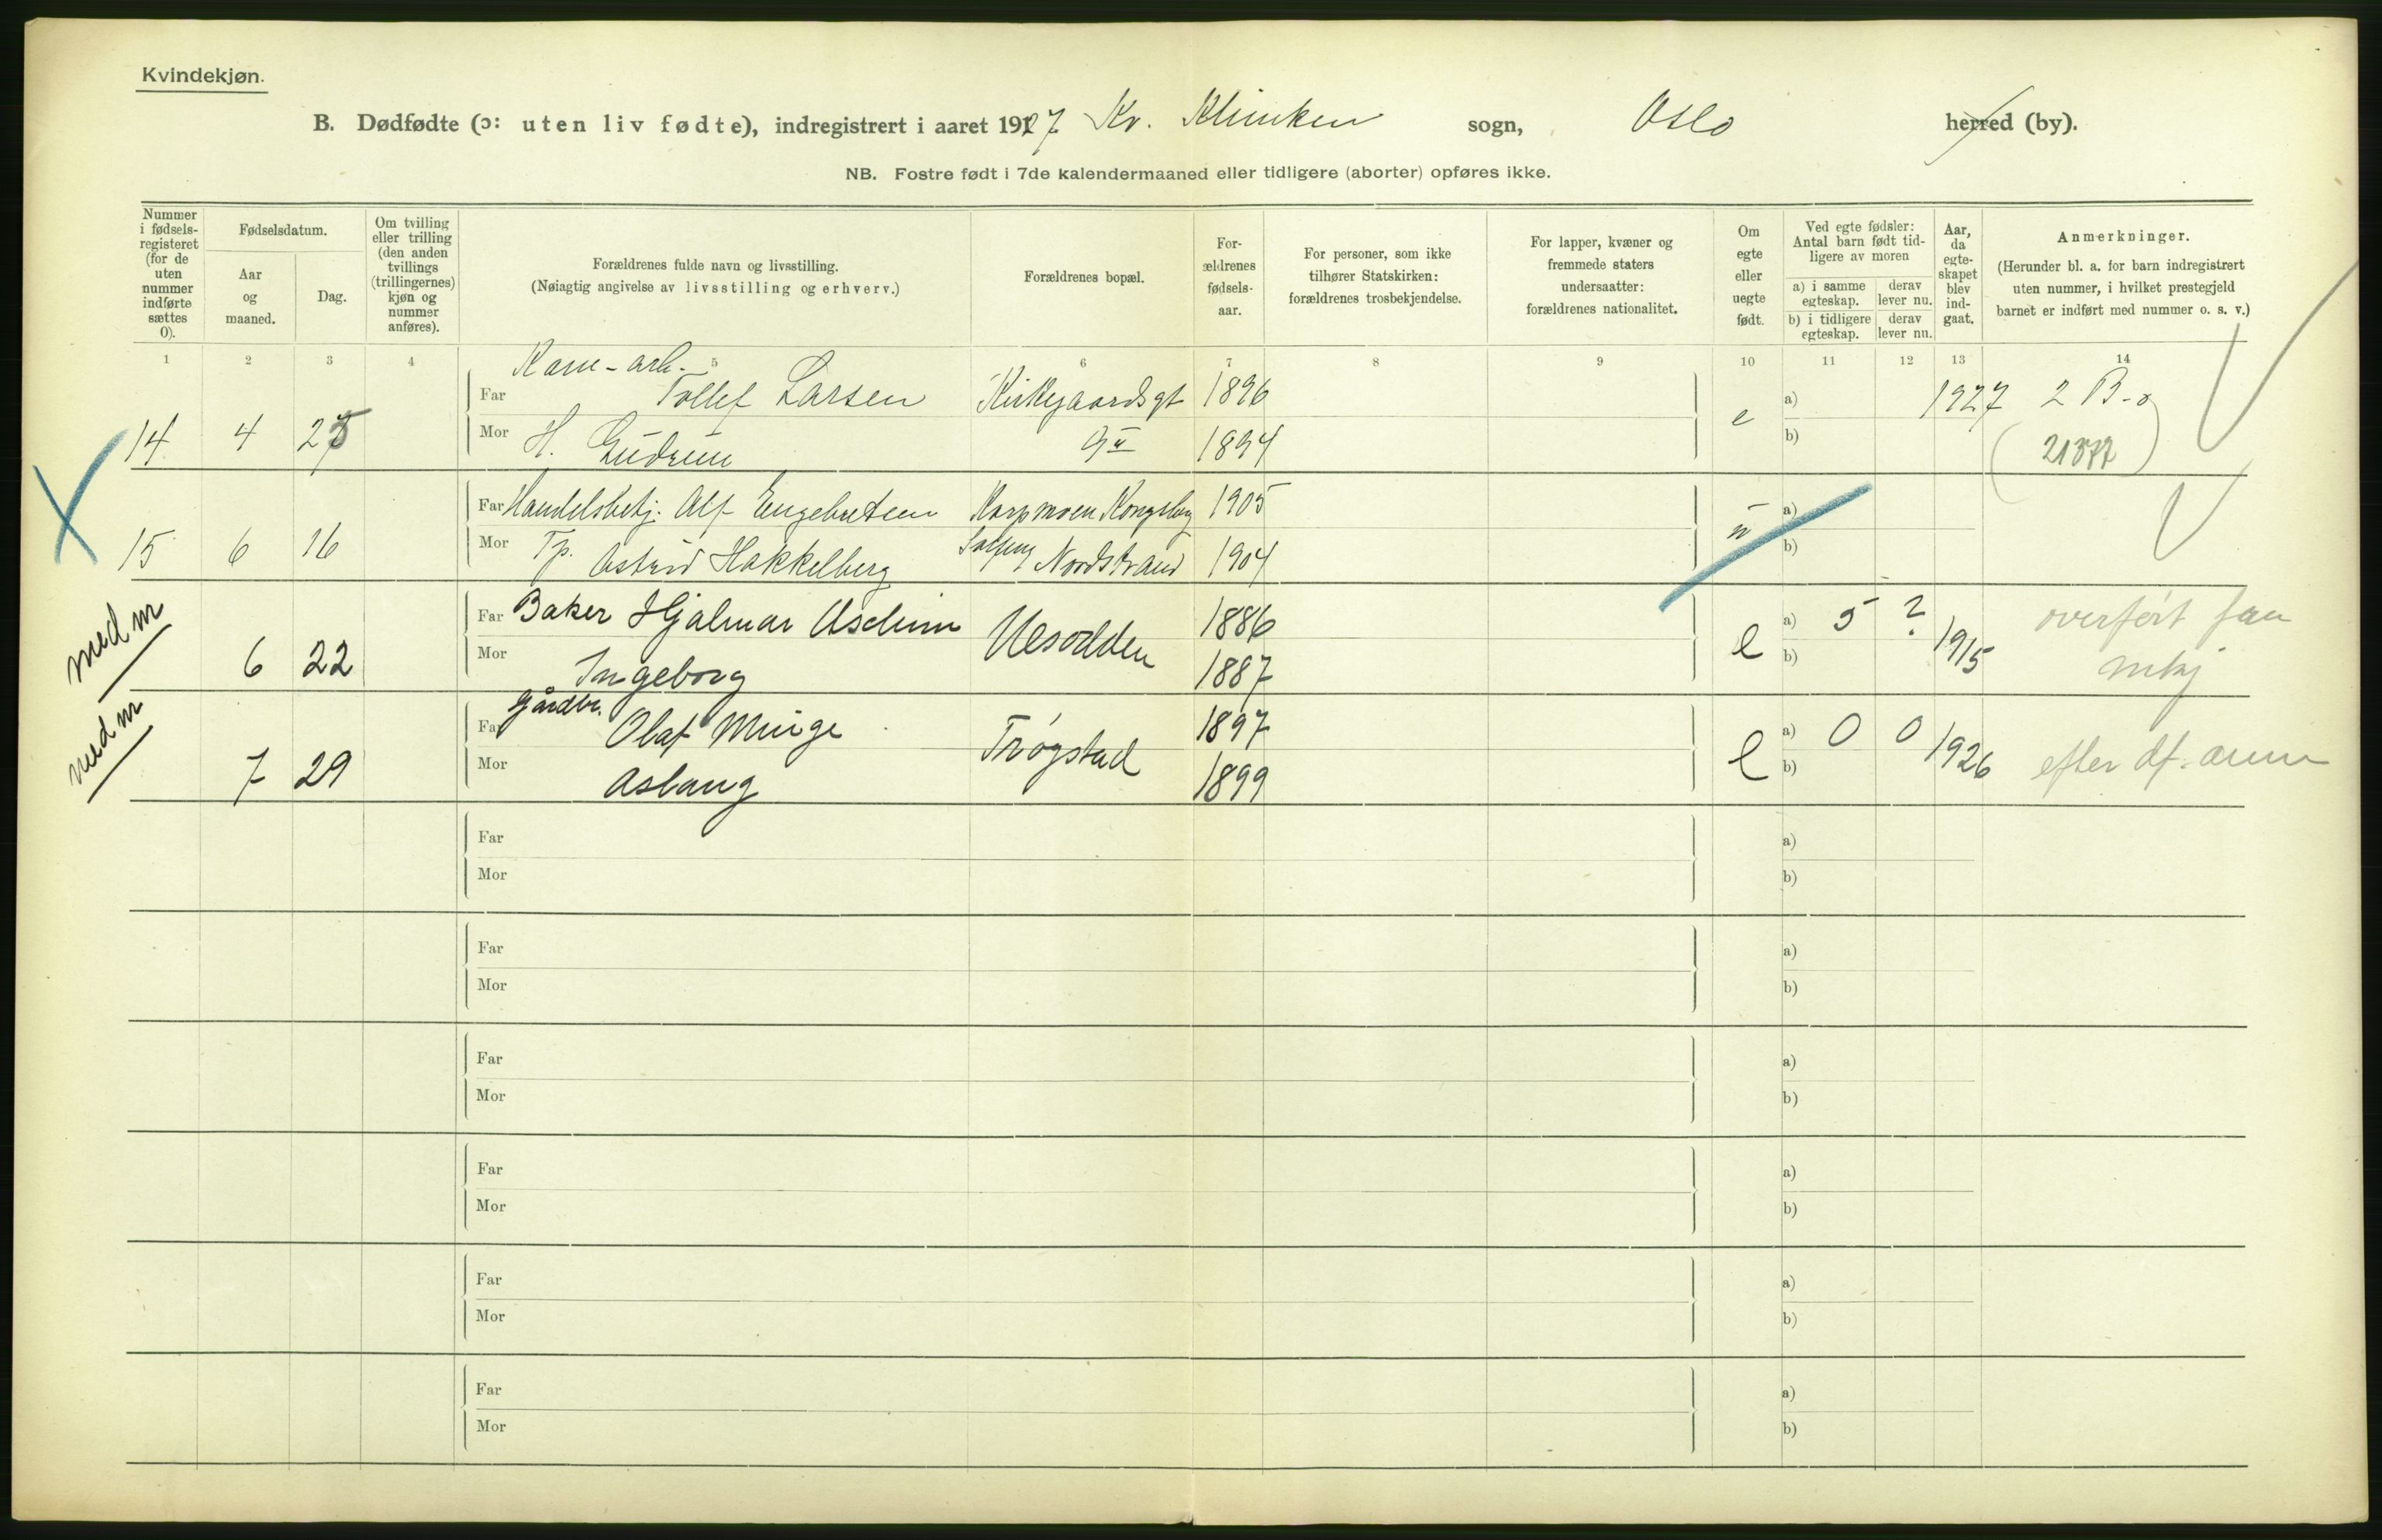 Kvindekjøn.
B. Dødfødte (ɔ: uten liv fødte), indregistrert i aaret 1927 Kv. Klinken sogn, Oslo herred (by).
NB. Fostre født i 7de kalendermaaned eller tidligere (aborter) opføres ikke.
Nummer i fødsels-registeret (for de uten nummer indførte sættes 0).
Fødselsdatum.
Aar og maaned.
Dag.
Om tvilling eller trilling (den anden tvillings (trillingernes) kjøn og nummer anføres).
Forældrenes fulde navn og livsstilling.
(Nøiagtig angivelse av livsstilling og erhverv.)
Forældrenes bopæl.
For-ældrenes fødsels-aar.
For personer, som ikke tilhører Statskirken: forældrenes trosbekjendelse.
For lapper, kvæner og fremmede staters undersaatter: forældrenes nationalitet.
Om egte eller uegte født.
Ved egte fødsler: Antal barn født tid-ligere av moren
a) i samme egteskap.
derav lever nu.
b) i tidligere egteskap.
derav lever nu.
Aar, da egte-skapet blev ind-gaat.
Anmerkninger.
(Herunder bl. a. for barn indregistrert uten nummer, i hvilket prestegjeld barnet er indført med nummer o. s. v.)
1 2 3 4 5 6 7 8 9 10 11 12 13 14
Far Tollef Larsen Kirkegaardsgt 1896 a) 1927 2 B-
14 4 Mor H. Gudrun 9 II 1894 e b)
Far Handelsbetj. Alf Engebretsen Kongsberg 1905 a)
15 6 16 Mor Tp. Astrid Hakkelberg Nordstrand 1904 u b)
med m
Far Baker Hjalmar Aschim Nesodden 1886 e a) 5 ? 1915 overført fra
6 22 Mor Ingeborg 1887 b) mkj
med m
Gårdbr.
Far Olaf Minge Trøgstad 1897 e a) 0 0 1926 efter df.
7 29 Mor Aslaug 1899 b)
Far a)
Mor b)
Far a)
Mor b)
Far a)
Mor b)
Far a)
Mor b)
Far a)
Mor b)
Far a)
Mor b)